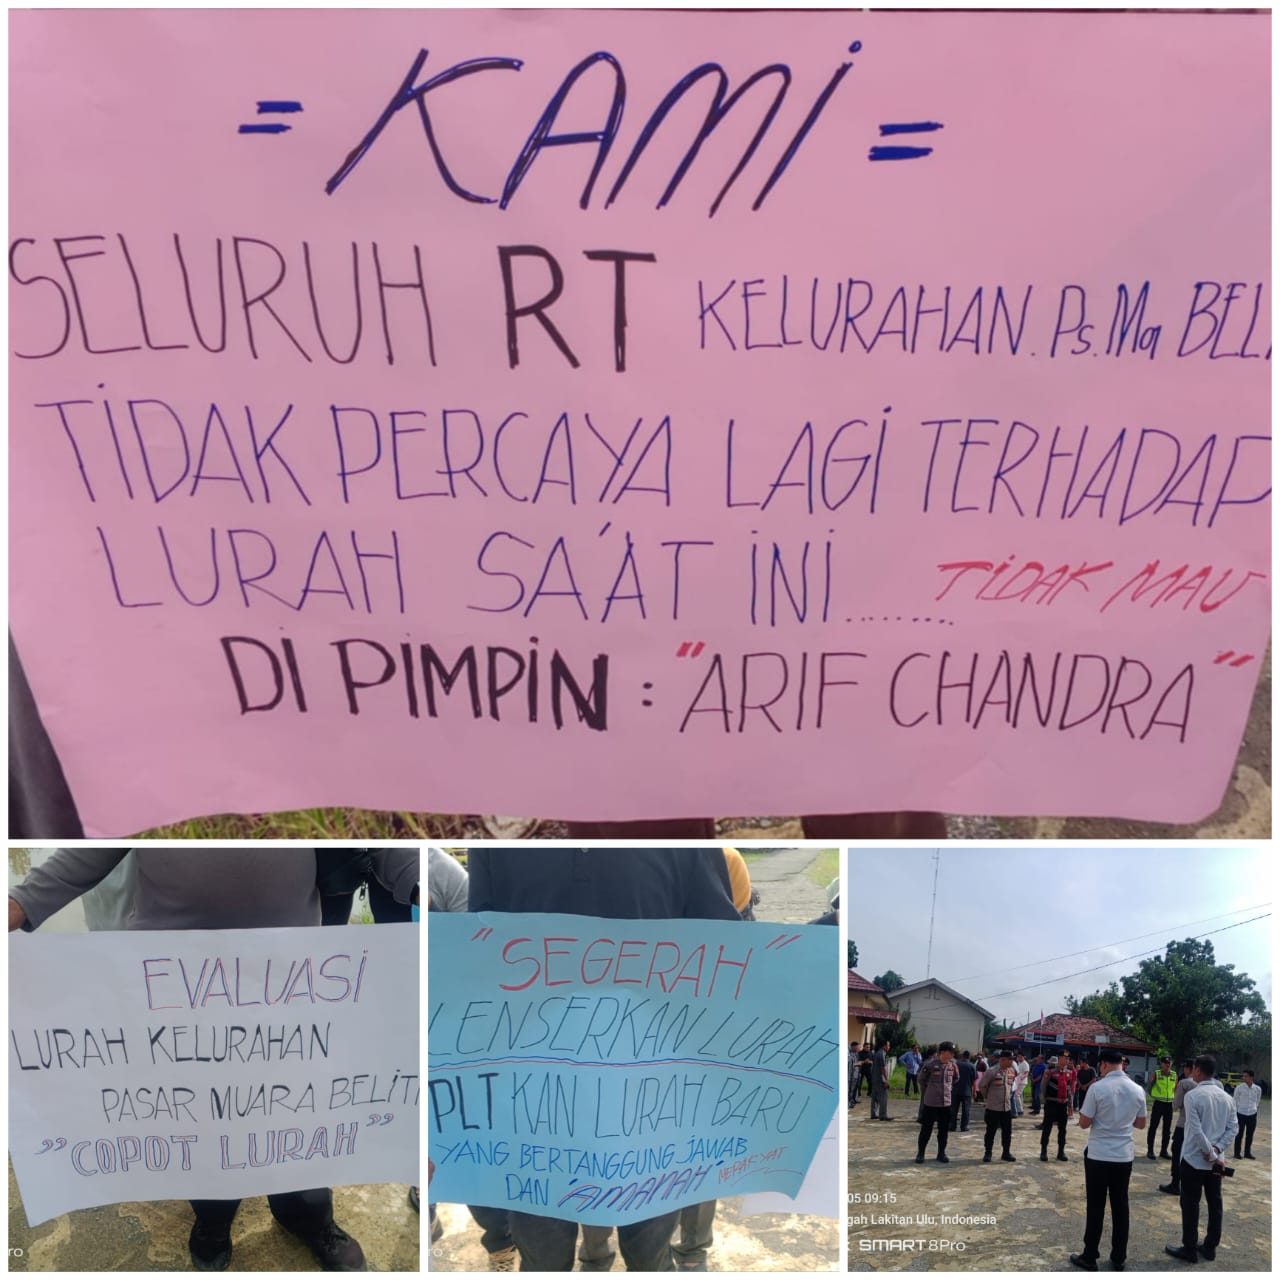 = KAMI =
SELURUH RT KELURAHAN. Ps. Ma BELI
TIDAK PERCAYA LAGI TERHADAP
LURAH SA'AT INI ........ TIDAK MAU
DI PIMPIN : "ARIF CHANDRA"
EVALUASI
LURAH KELURAHAN
PASAR MUARA BELITI
"COPOT LURAH"
"SEGERAH"
LENSERKAN LURAH
PLT KAN LURAH BARU
YANG BERTANGGUNG JAWAB
DAN AMANAH
05 09:15
gah Lakitan Ulu, Indonesia
SMART 8Pro
ro
ro